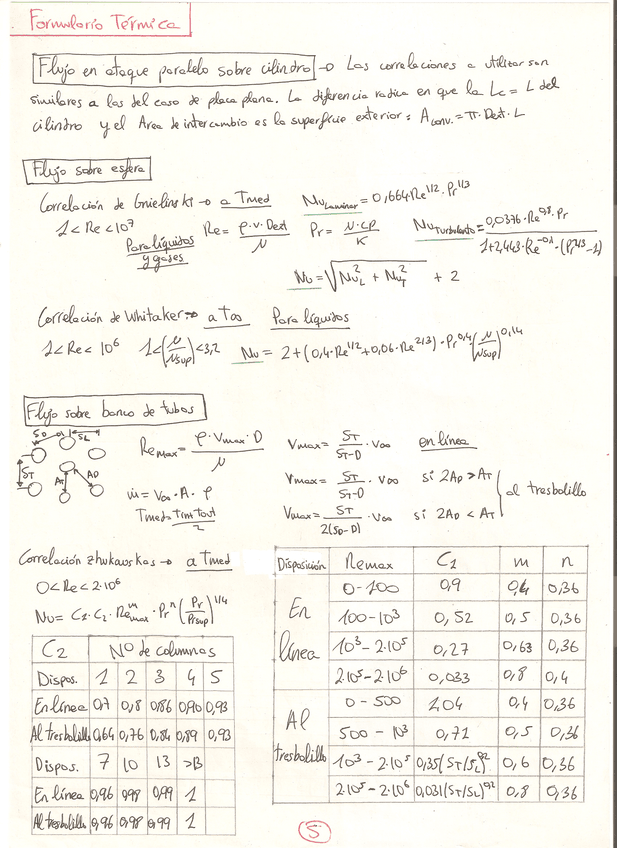 Formulario Térmica
Flujo en ataque paralelo sobre cilindro → Las correlaciones a utilizar son
similares a las del caso de placa plana. La diferencia radica en que la Lc = L del
cilindro y el Area de intercambio es la superficie exterior: Aconv. = π·Dext·L
Flujo sobre esfera
Correlación de Gnielinski → a Tmed NuLaminar = 0,664·Re^1/2·Pr^1/3
1 < Re < 10^7 Para líquidos y gases Re = ρ·v·Dext/μ Pr = μ·cp/K NuTurbulento = 0,0376·Re^0,8·Pr/1+2,443·Re^-0,1·(Pr^2/3-1)
Nu = √(Nu_L^2 + Nu_T^2) + 2
Correlación de Whitaker → a T∞ Para líquidos
1 < Re < 10^6 1 < (μ/μsup) < 3,2 Nu = 2+(0,4·Re^1/2+0,06·Re^2/3)·Pr^0,4(μ/μsup)^0,14
Flujo sobre banco de tubos
SD SL
ST AT AD
Remax = ρ·Vmax·D/μ Vmax = ST/ST-D · V∞ en línea
ṁ = V∞·A·ρ Vmax = ST/ST-D · V∞ si 2AD > AT
al tresbolillo
Tmed = Tin+Tout/2 Vmax = ST/2(SD-D) · V∞ si 2AD < AT
Correlación Zhukauskas → a Tmed
0 < Re < 2·10^6
Nu = C2·C1·Remax^m·Pr^n(Pr/Prsup)^1/4
C2 Nº de columnas
Dispos. 1 2 3 4 5
En línea 0,7 0,8 0,86 0,90 0,93
Al tresbolillo 0,64 0,76 0,84 0,89 0,93
Dispos. 7 10 13 >13
En línea 0,96 0,98 0,99 1
Al tresbolillo 0,96 0,98 0,99 1
Disposición Remax C1 m n
En línea
0-100 0,9 0,4 0,36
100-10^3 0,52 0,5 0,36
10^3-2·10^5 0,27 0,63 0,36
2·10^5-2·10^6 0,033 0,8 0,4
Al tresbolillo
0-500 1,04 0,4 0,36
500-10^3 0,71 0,5 0,36
10^3-2·10^5 0,35(ST/SL)^0,2 0,6 0,36
2·10^5-2·10^6 0,031(ST/SL)^0,2 0,8 0,36
5